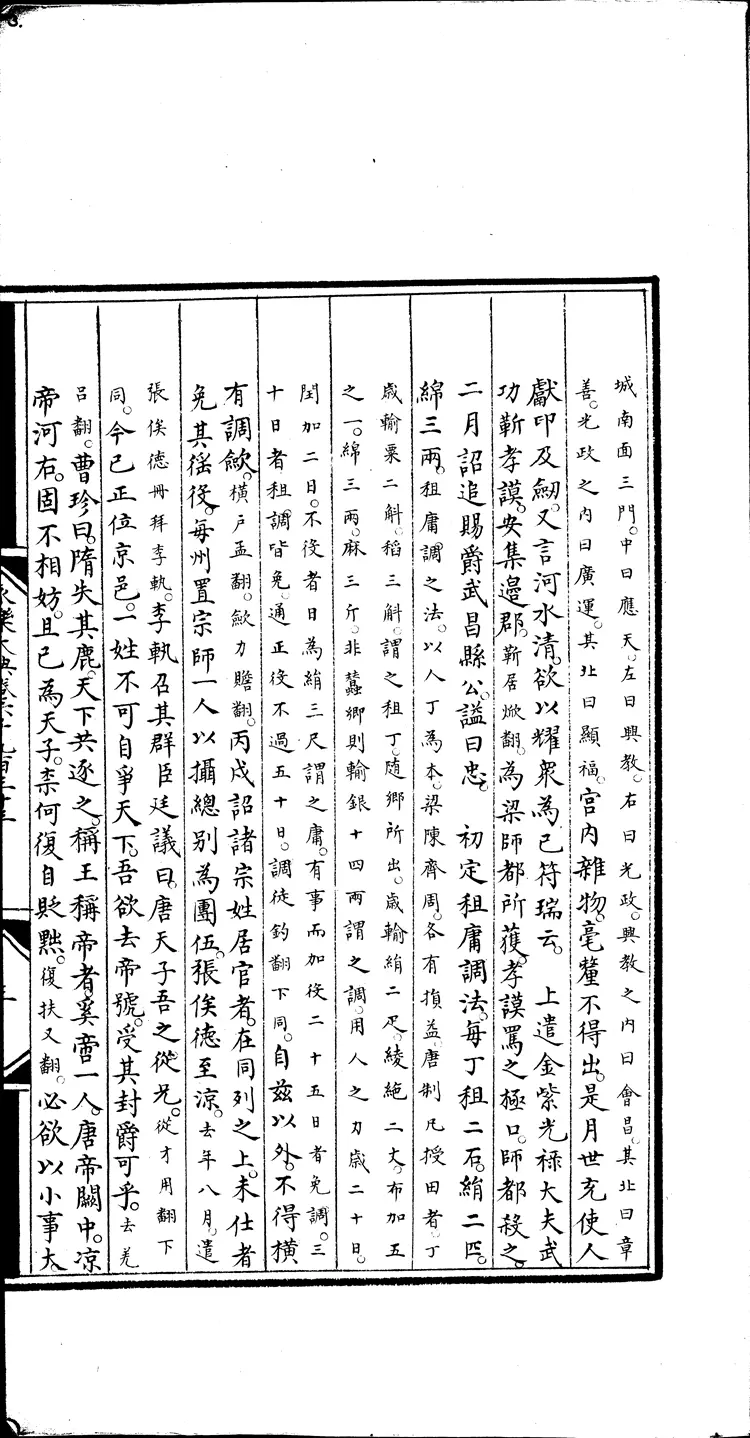 城南面三門。中曰應天。左曰興教。右曰光政。興教之內曰會昌。其北曰章
善。光政之內曰廣運。其北曰顯福。宫內雜物。毫釐不得出。是月世充使人
獻印及劒。又言河水清。欲以耀衆為已符瑞云。 上遣金紫光禄大夫武
功靳孝謨。安集邊郡。靳居焮翻。為梁師都所獲。孝謨罵之極口。師都殺之。
二月詔追賜爵武昌縣公。謚曰忠。 初定租庸調法。每丁租二石。絹二匹。
綿三兩。租庸調之法。以人丁為本。梁陳齊周。各有損益。唐制凡授田者。丁
歲輸粟二斛。稻三斛。謂之租丁。随鄉所出。歲輸絹二疋。綾絁二丈。布加五
之一。綿三兩。麻三斤。非蠶鄉則輸銀十四兩謂之調。用人之力歲二十日。
閏加二日。不役者日為絹三尺謂之庸。有事而加役二十五日者免調。三
十日者租調皆免。通正役不過五十日。調徒釣翻下同。自兹以外。不得橫
有調歛。橫户孟翻。歛力贍翻。丙戍詔諸宗姓居官者。在同列之上。未仕者
免其徭役。每州置宗師一人以攝總别為團伍。張俟德至涼。去年八月。遣
張俟德冊拜李軌。李軌召其群臣廷議曰。唐天子吾之從兄。從才用翻下
同。今已正位京邑。一姓不可自爭天下。吾欲去帝號。受其封爵可乎。去羌
吕翻。曹珍曰。隋失其鹿。天下共逐之。稱王稱帝者。奚啻一人。唐帝關中。凉
帝河右。固不相妨。且已為天子。柰何復自貶黜。復扶又翻。必欲以小事大